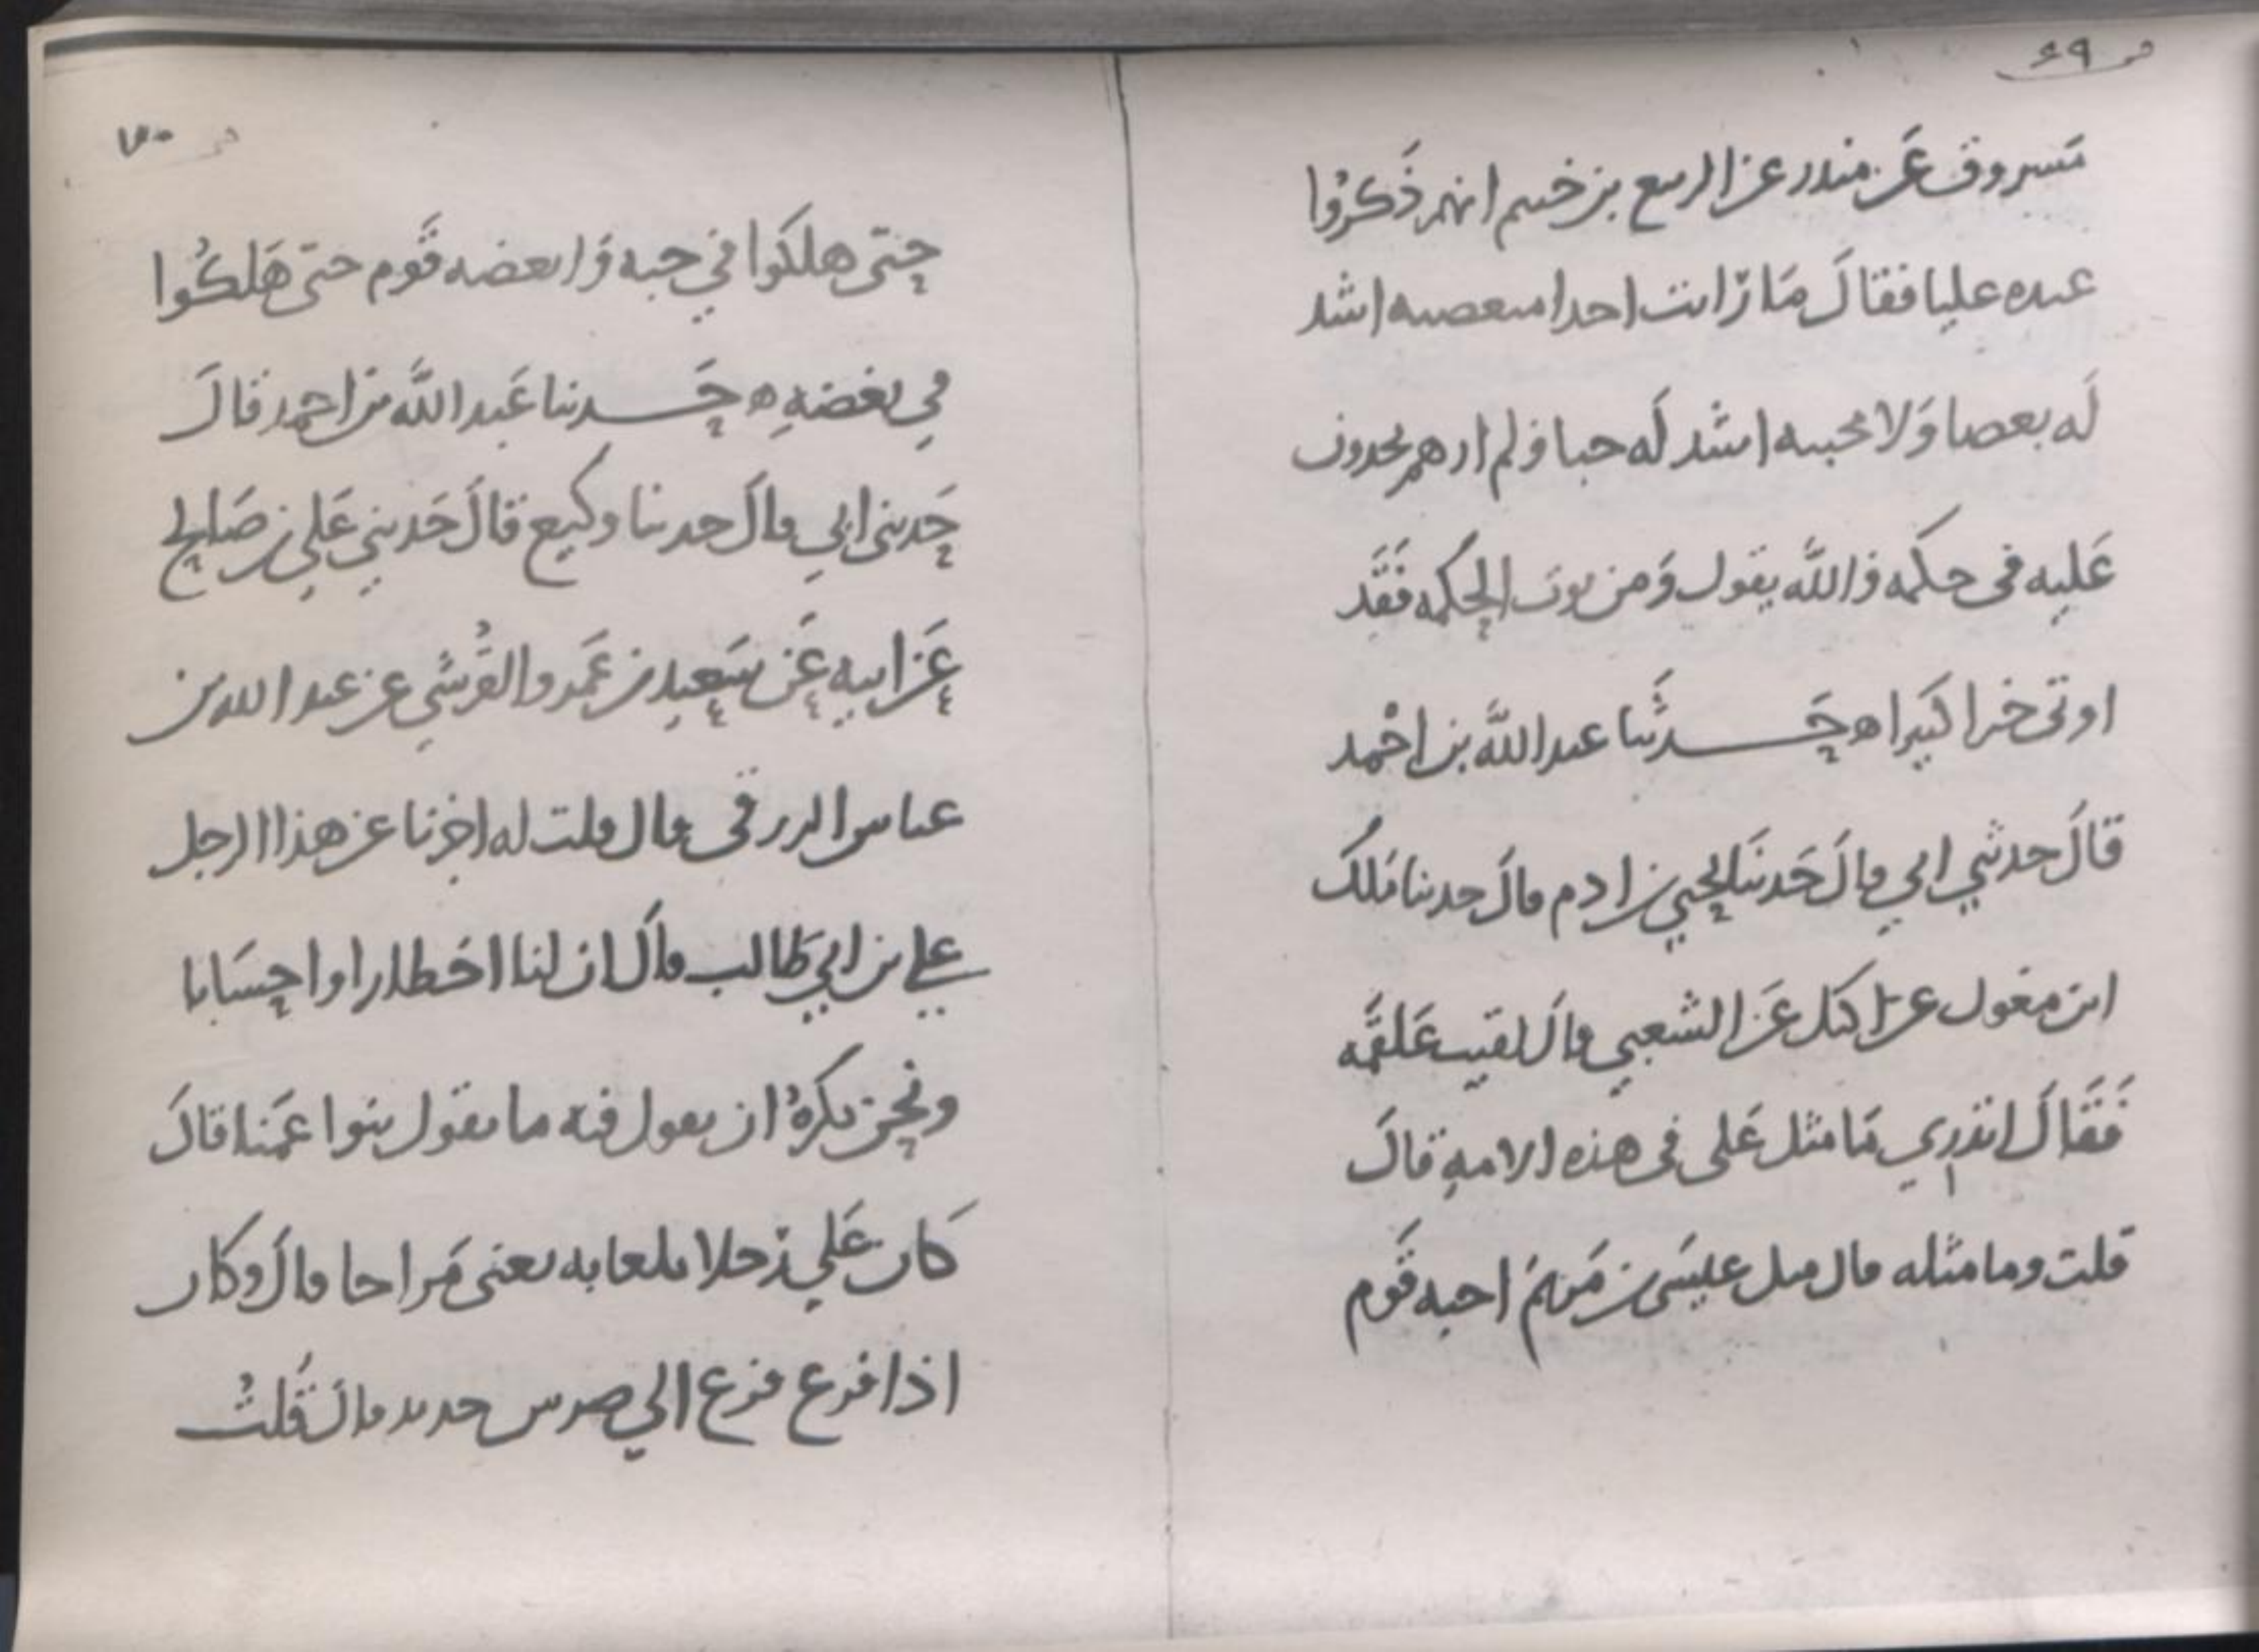 ٦٩
مسروق عن منذر عن الربيع بن خثيم انهم ذكروا
عنده عليا فقال ما رايت احدا مبغضيه اشد
له بغضا ولا محبيه اشد له حبا ولم ارهم يجدون
عليه في حكمه والله يقول ومن يوت الحكمه فقد
اوتي خيرا كثيرا ه حدثنا عبد الله بن احمد
قال حدثني ابي قال حدثنا يحيي بن ادم قال حدثنا ملك
ابن مغول عن اكيل عن الشعبي قال لقيت علقمه
فقال اتدري ما مثل علي في هذه الامه قال
قلت وما مثله قال مثل عيسى بن مريم احبه قوم
٧٠
حتى هلكوا في حبه وابغضه قوم حتى هلكوا
في بغضه ه حدثنا عبد الله بن احمد قال
حدثني ابي قال حدثنا وكيع قال حدثني علي بن صالح
عن ابيه عن سعيد بن عمرو القرشي عن عبد الله بن
عباس الزرقي قال قلت له اخبرنا عن هذا الرجل
علي بن ابي طالب قال ان لنا اخطارا واحسابا
ونحن نكره ان نقول فيه ما يقول بنوا عمنا قال
كان علي رجلا تلعابه يعني مزاحا قال وكان
اذا فزع فزع الي ضرس حديد قال قلت